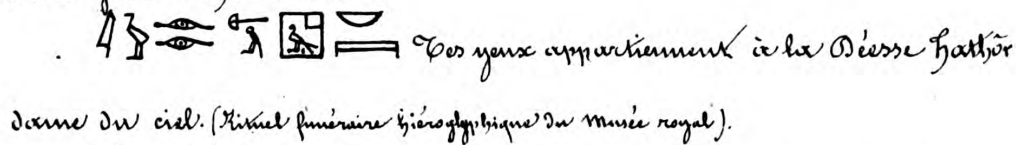 Tes yeux appartiennent à la Déesse Hathôr
dame du ciel. (Rituel funéraire hiéroglyphique du Musée royal).